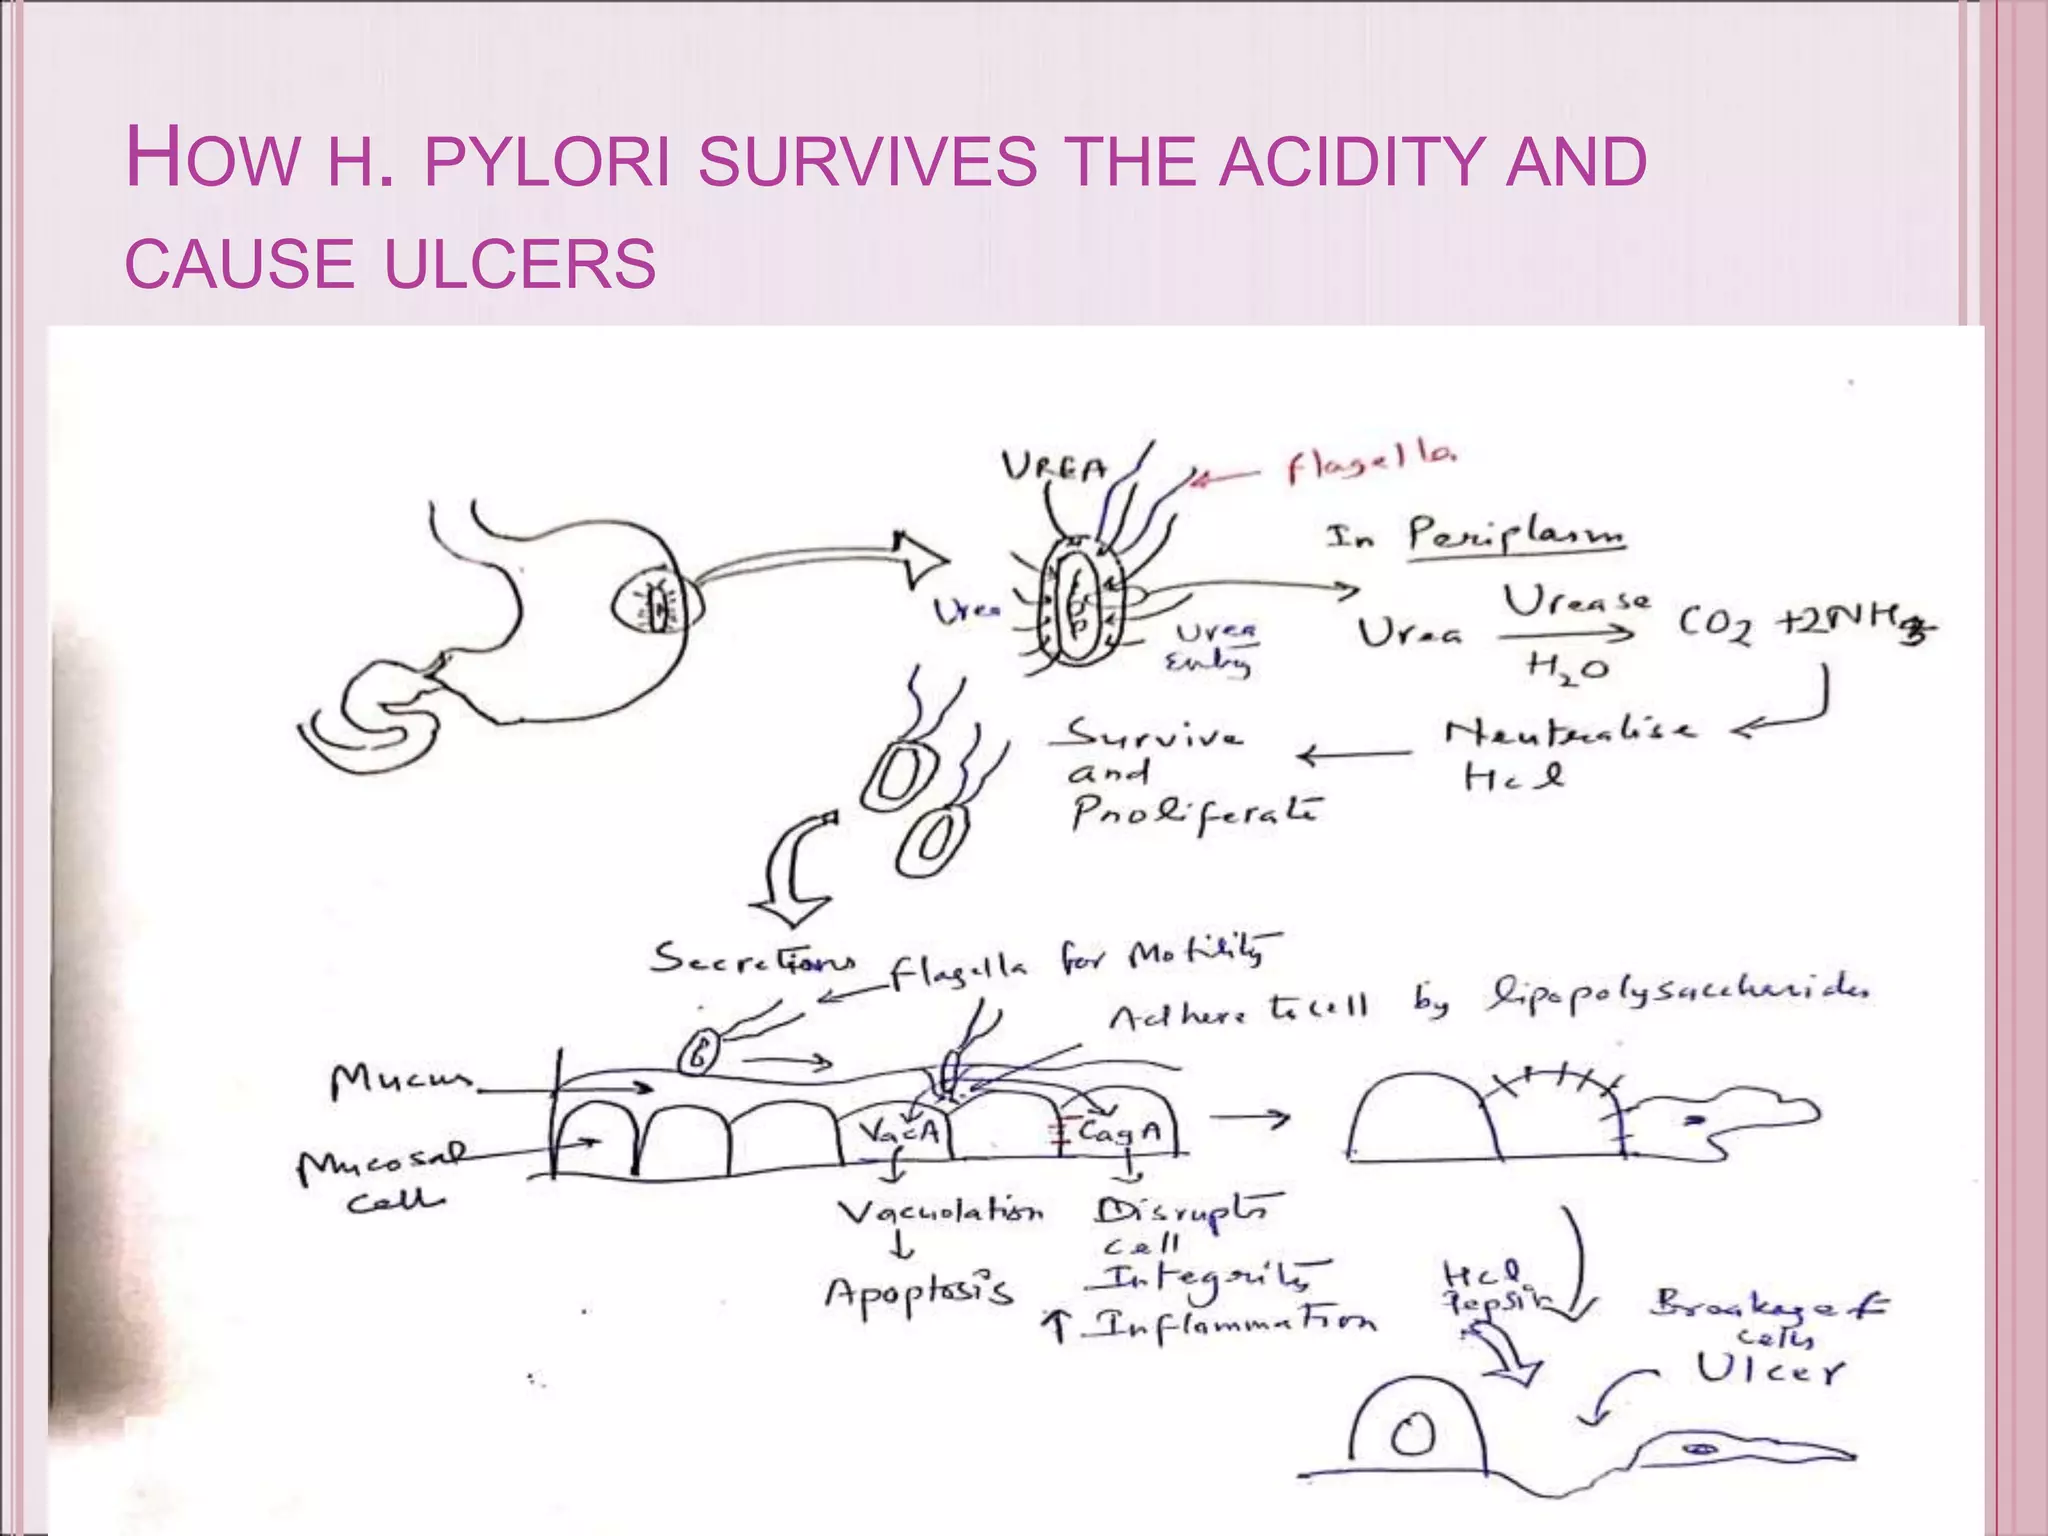 HOW H. PYLORI SURVIVES THE ACIDITY AND
CAUSE ULCERS
UREA
flagella
In Periplasm
Urea
Urea
Entry
Urea
Urease
H2O
CO2 + 2NH3
Neutralise
Hcl
Survive
and
Proliferate
Secretions
flagella for Motility
Adhere to cell by lipopolysaccharides
Mucus
Mucosal
cell
VacA
CagA
Vacuolation
Apoptosis
Disrupts
cell
Integrity
↑ Inflammation
Hcl
Pepsin
Breakage of
cells
Ulcer